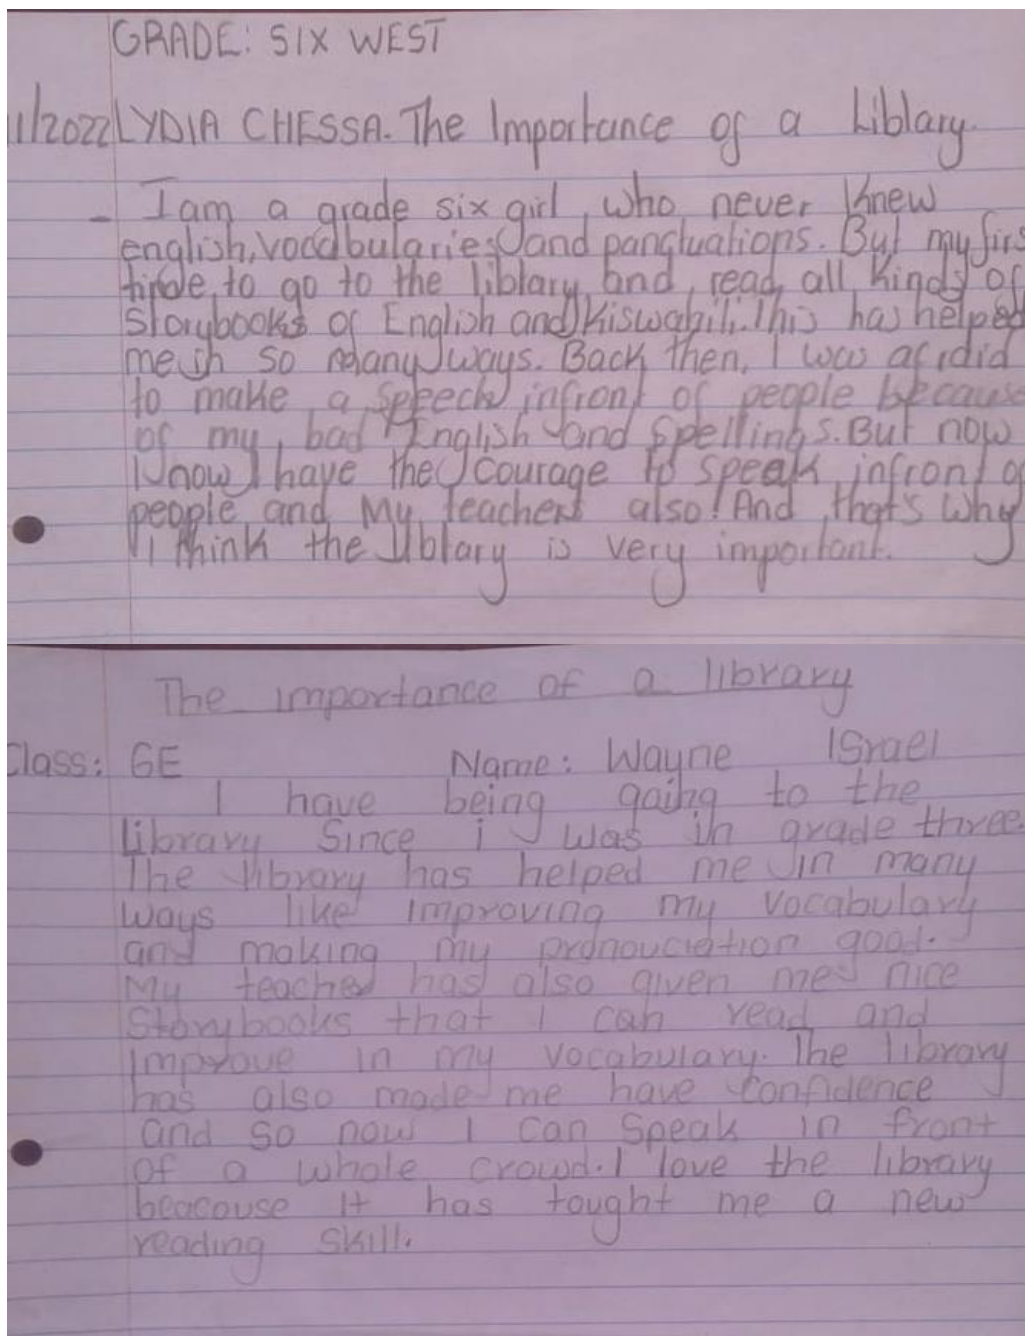 GRADE: SIX WEST
1/2022 LYDIA CHESSA. The Importance of a Liblary.
- I am a grade six girl, who never knew
english, vocabularies and panctuations. But my firs
time, to go to the liblary and read all kinds of
storybooks of English and Kiswahili. This has helped
me in so many ways. Back then, I was afridid
to make a speech infront of people because
of my bad English and Spellings. But now
I now I have the courage to speak infront of
people and My teachers also! And that's Why
i think the liblary is very important.
The importance of a library
Class: 6E Name: Wayne Israel
I have being going to the
library Since i was in grade three.
The library has helped me in many
ways like improving my vocabulary
and making my pronouciation good.
My teacher has also given me nice
Storybooks that I can read and
improve in my vocabulary. The library
has also made me have confidence
and so now I can Speak in front
of a whole crowd. I love the library
beacouse it has tought me a new
reading skill.